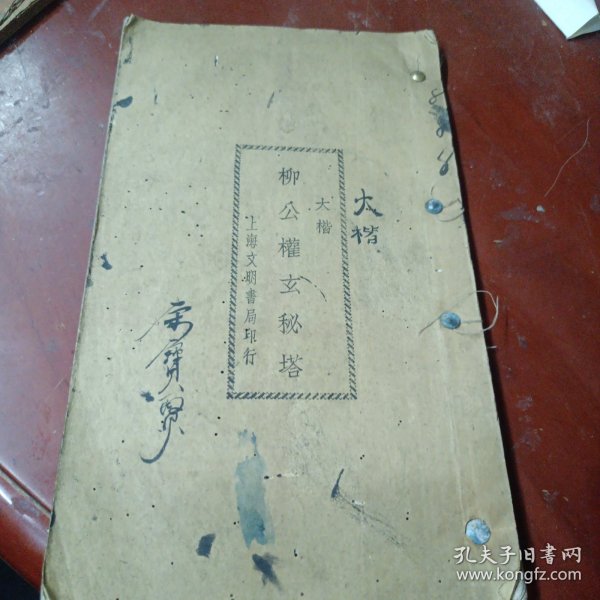 大楷
大楷
柳公權玄秘塔
上海文明書局印行
寶賢
孔夫子旧書网
www.kongfz.com